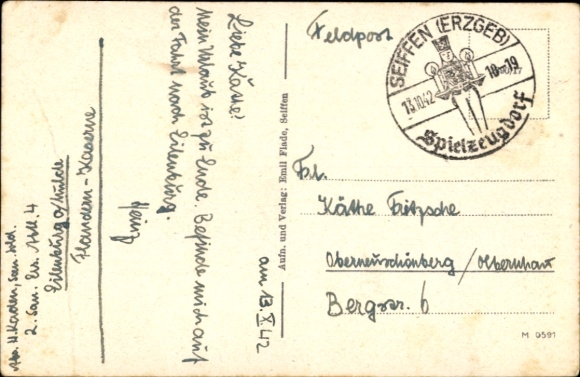 Abs. H. Kaden, San. Sold.
2. San. Ers. Abt. 4
Eilenburg a/Mulde
Flandern-Kaserne
Liebe Käthe!
Mein Urlaub ist zu Ende. Befinde mich auf
der Fahrt nach Eilenburg.
Heinz
am 13.X.42
Aufn. und Verlag: Emil Flade, Seiffen
Feldpost
SEIFFEN (ERZGEB)
13.10.42
18-19
Spielzeugdorf
Frl.
Käthe Fritzsche
Oberneuschönberg/Olbernhau
Bergstr. 6
M 0591